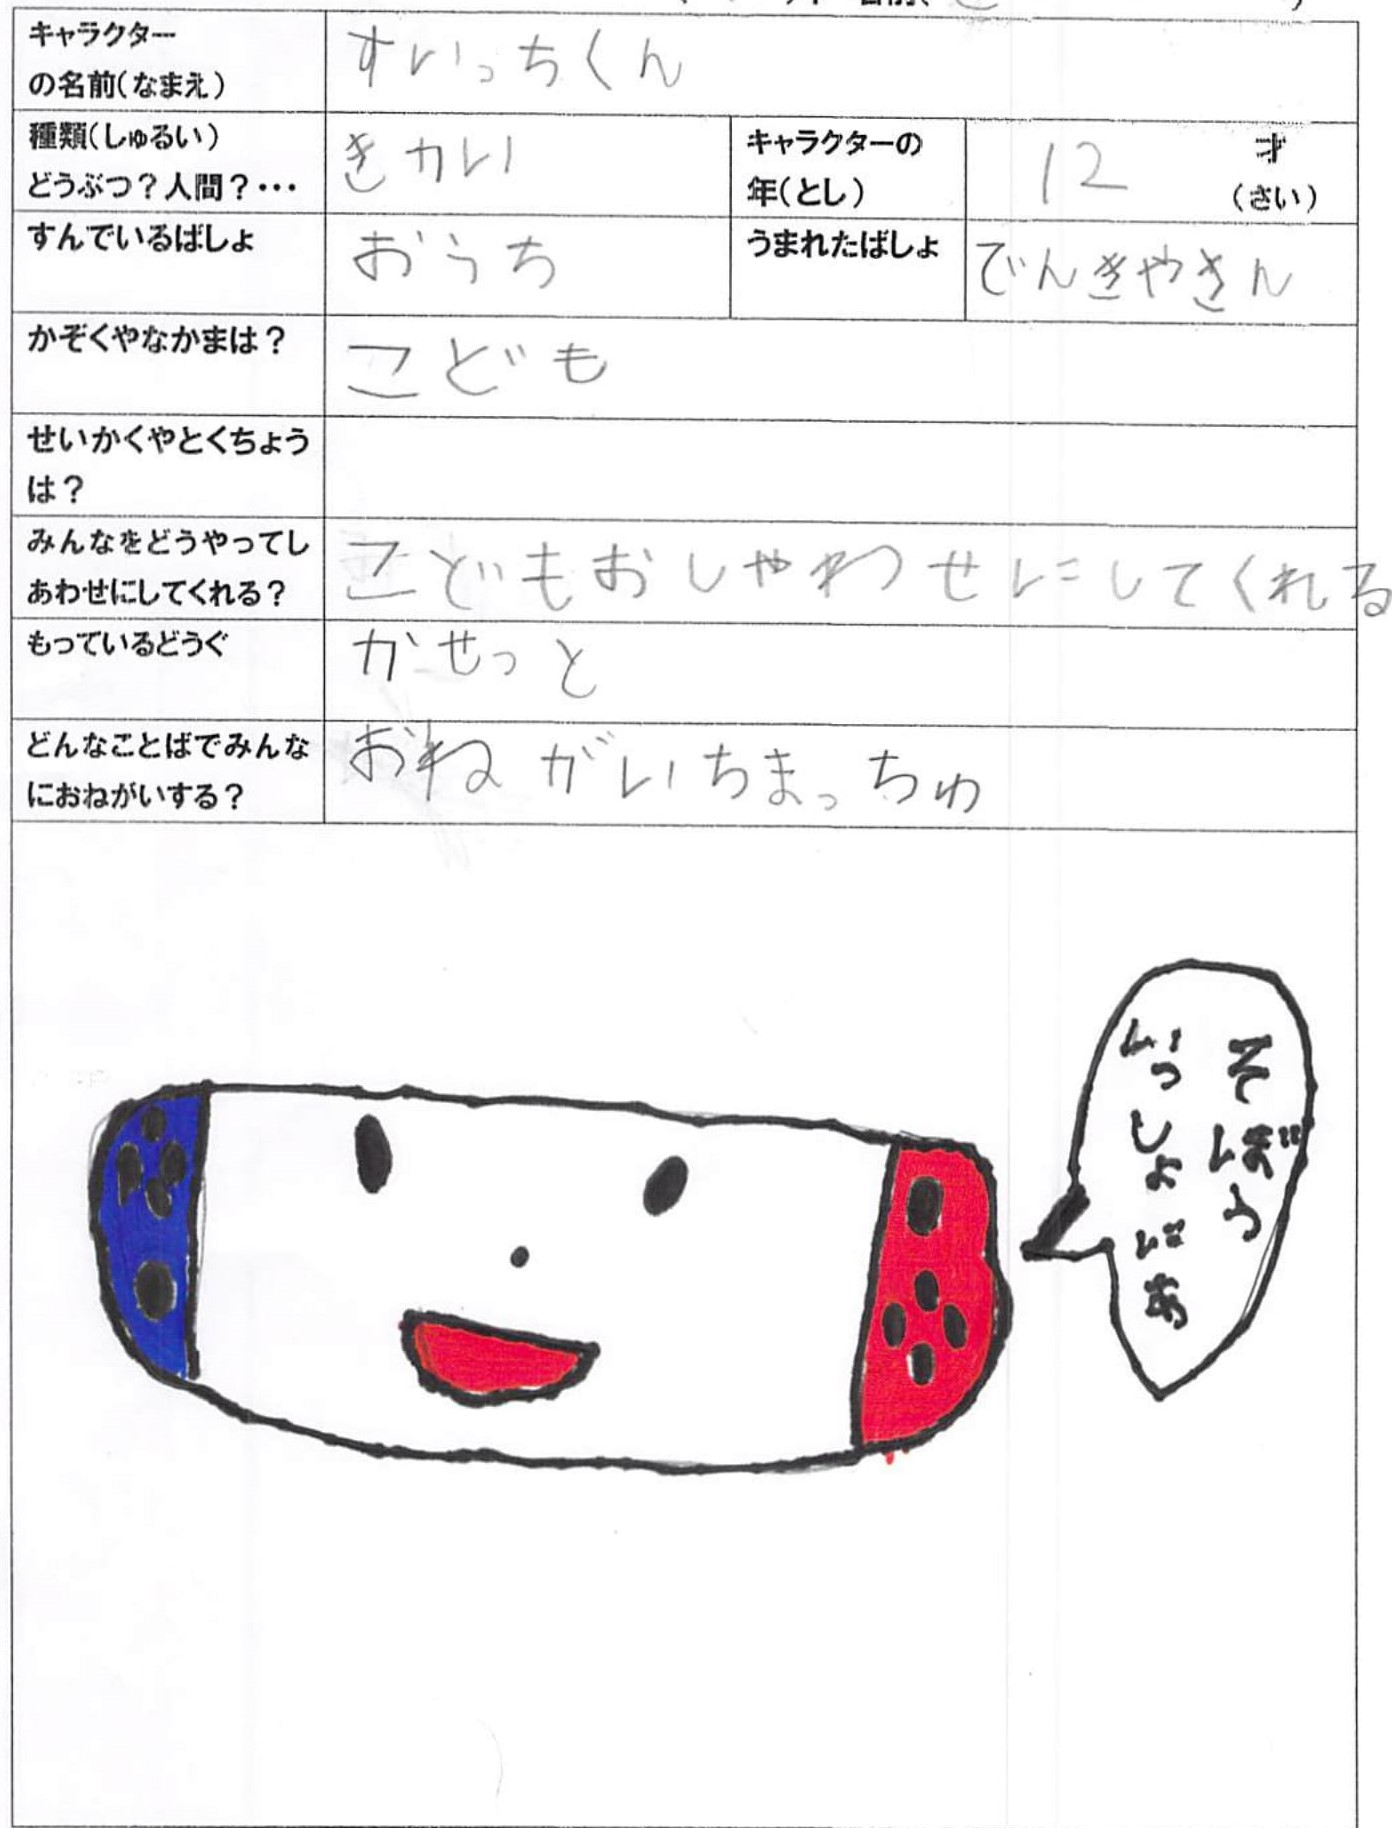 キャラクター
の名前(なまえ)
すいっちくん
種類(しゅるい)
どうぶつ?人間?・・・
きカい
キャラクターの
年(とし)
12
才
(さい)
すんでいるばしょ
おうち
うまれたばしょ
でんきやさん
かぞくやなかまは?
こども
せいかくやとくちょう
は?
みんなをどうやってし
あわせにしてくれる?
こどもおしやわせにしてくれる
もっているどうぐ
かせっと
どんなことばでみんな
におねがいする?
おねがいちまっちゅ
そぼう
いっしょにあ